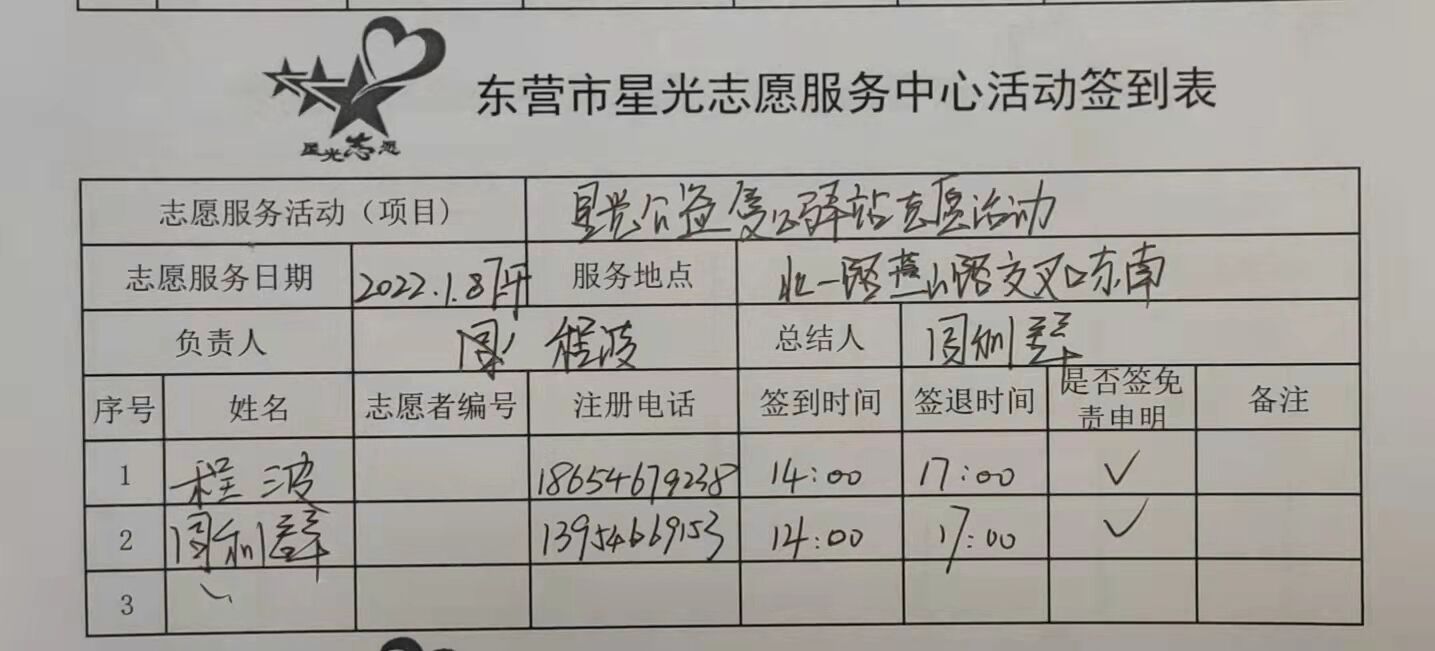 星光志愿
东营市星光志愿服务中心活动签到表
志愿服务活动（项目） 星光公益爱心驿站志愿活动
志愿服务日期 2022.1.8下午 服务地点 北一路燕山路交叉口东南
负责人 程波 总结人 周利群
序号 姓名 志愿者编号 注册电话 签到时间 签退时间 是否签免责申明 备注
1 程波 18654679238 14:00 17:00 ✓
2 周利群 13954669153 14:00 17:00 ✓
3